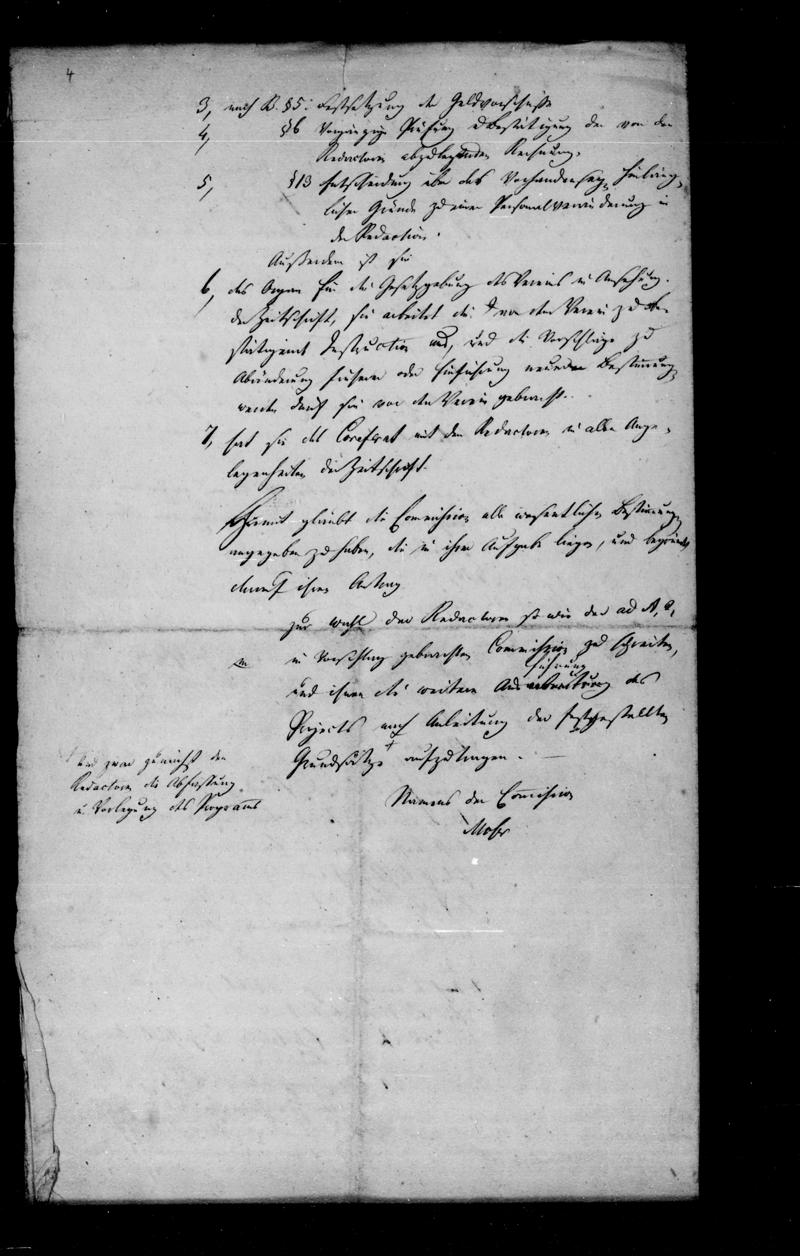 4
3, nach B. §5: Festsetzung der Geldvorschüsse
4, §6 Vorgängige Prüfung & Bestätigung der von den
Redactoren abzulegenden Rechnung.
5, §13 Entscheidung über das Vorhandenseyn hinläng-
licher Gründe zu einer Personalveränderung in
der Redaction.
Außerdem ist sie
6, das Organ für die Gesetzgebung des Vereins in Ansehung
der Zeitschrift, sie arbeitet die von dem Verein zu be-
stätigende Instruction aus, und die Vorschläge zu
Abänderung früherer oder Einführung neuer Bestimmungen
werden durch sie vor den Verein gebracht.
7, hat sie das Correferat mit den Redactoren in allen Ange-
legenheiten der Zeitschrift.
Hiermit glaubt die Commission alle wesentlichen Bestimmungen
angegeben zu haben, die in ihrer Aufgabe liegen, und begründet
darauf ihren Antrag
zur Wahl der Redactoren so wie der ad A, 2,
in Vorschlag gebrachten Commission zu schreiten,
führung
und ihnen die weitere Ausarbeitung des
Projects nach Anleitung der festgestellten
Grundsätze + aufzutragen. —
+ und zwar zunächst den
Redactoren die Abfassung
u. Vorlegung des Programms
Namens der Commission
Mohr